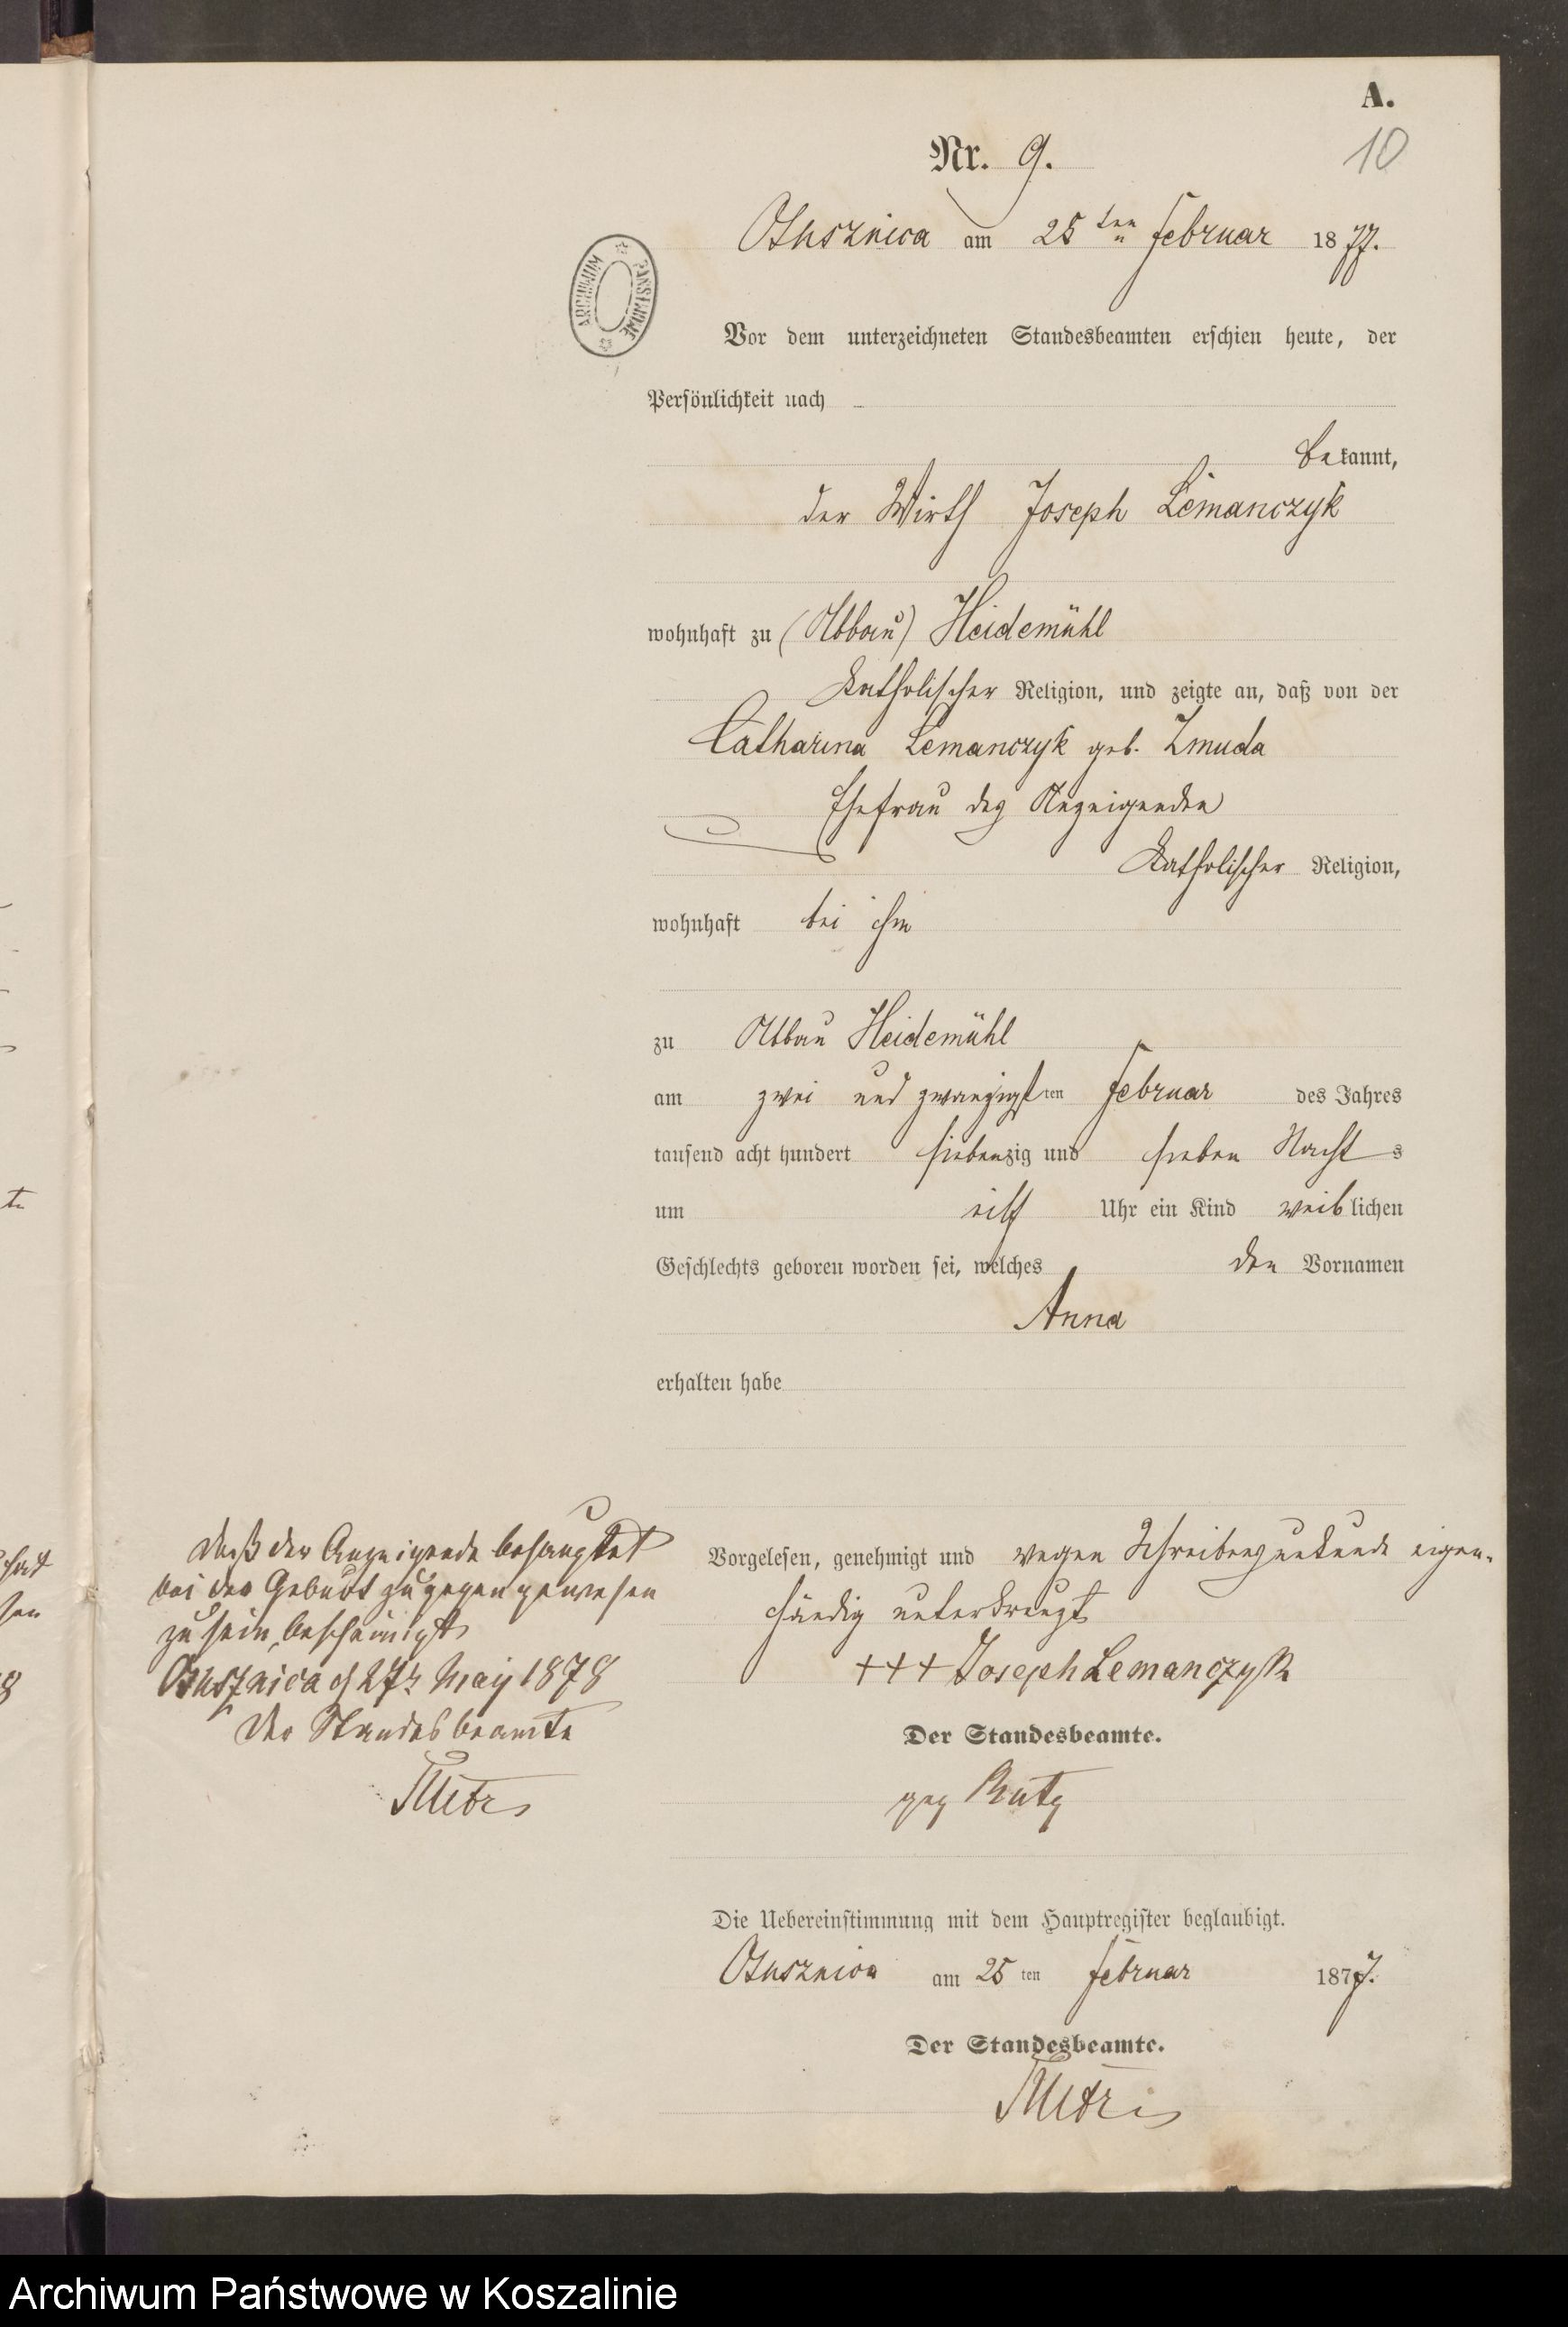 A.
Nr. 9.
10
Ossusznica am 25 ten Februar 1877.
ARCHIWUM PAŃSTWOWE
Vor dem unterzeichneten Standesbeamten erschien heute, der
Persönlichkeit nach
bekannt,
der Wirth Joseph Lemanczyk
wohnhaft zu (Abbau) Heidemühl
katholischer Religion, und zeigte an, daß von der
Catharina Lemanczyk geb. Zmuda
Ehefrau des Anzeigenden
katholischer Religion,
wohnhaft bei ihm
zu Abbau Heidemühl
am zwei und zwanzigsten Februar des Jahres
tausend acht hundert siebenzig und sieben Nachts
um eilf Uhr ein Kind weiblichen
Geschlechts geboren worden sei, welches den Vornamen
Anna
erhalten habe
Vorgelesen, genehmigt und wegen Schreibensunkunde eigen-
händig unterkreuzt
+++ Joseph Lemanczyk
Der Standesbeamte.
gez Rutz
Daß der Anzeigende behauptet
bei der Geburt zugegen gewesen
zu sein, bescheinigt
Ossusznica d 27t May 1878
Der Standesbeamte
Die Uebereinstimmung mit dem Hauptregister beglaubigt.
Ossusznica am 25 ten Februar 1877.
Der Standesbeamte.
Archiwum Państwowe w Koszalinie